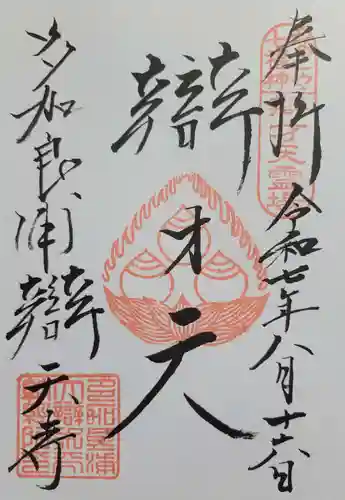 奉拝
令和七年八月十六日
辯才天
多加良浦辯天寺